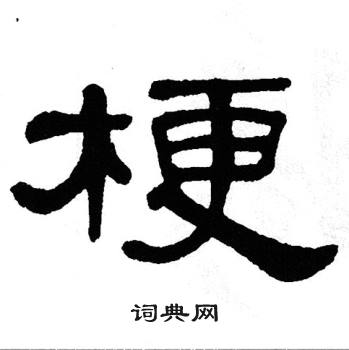 梗
词典网